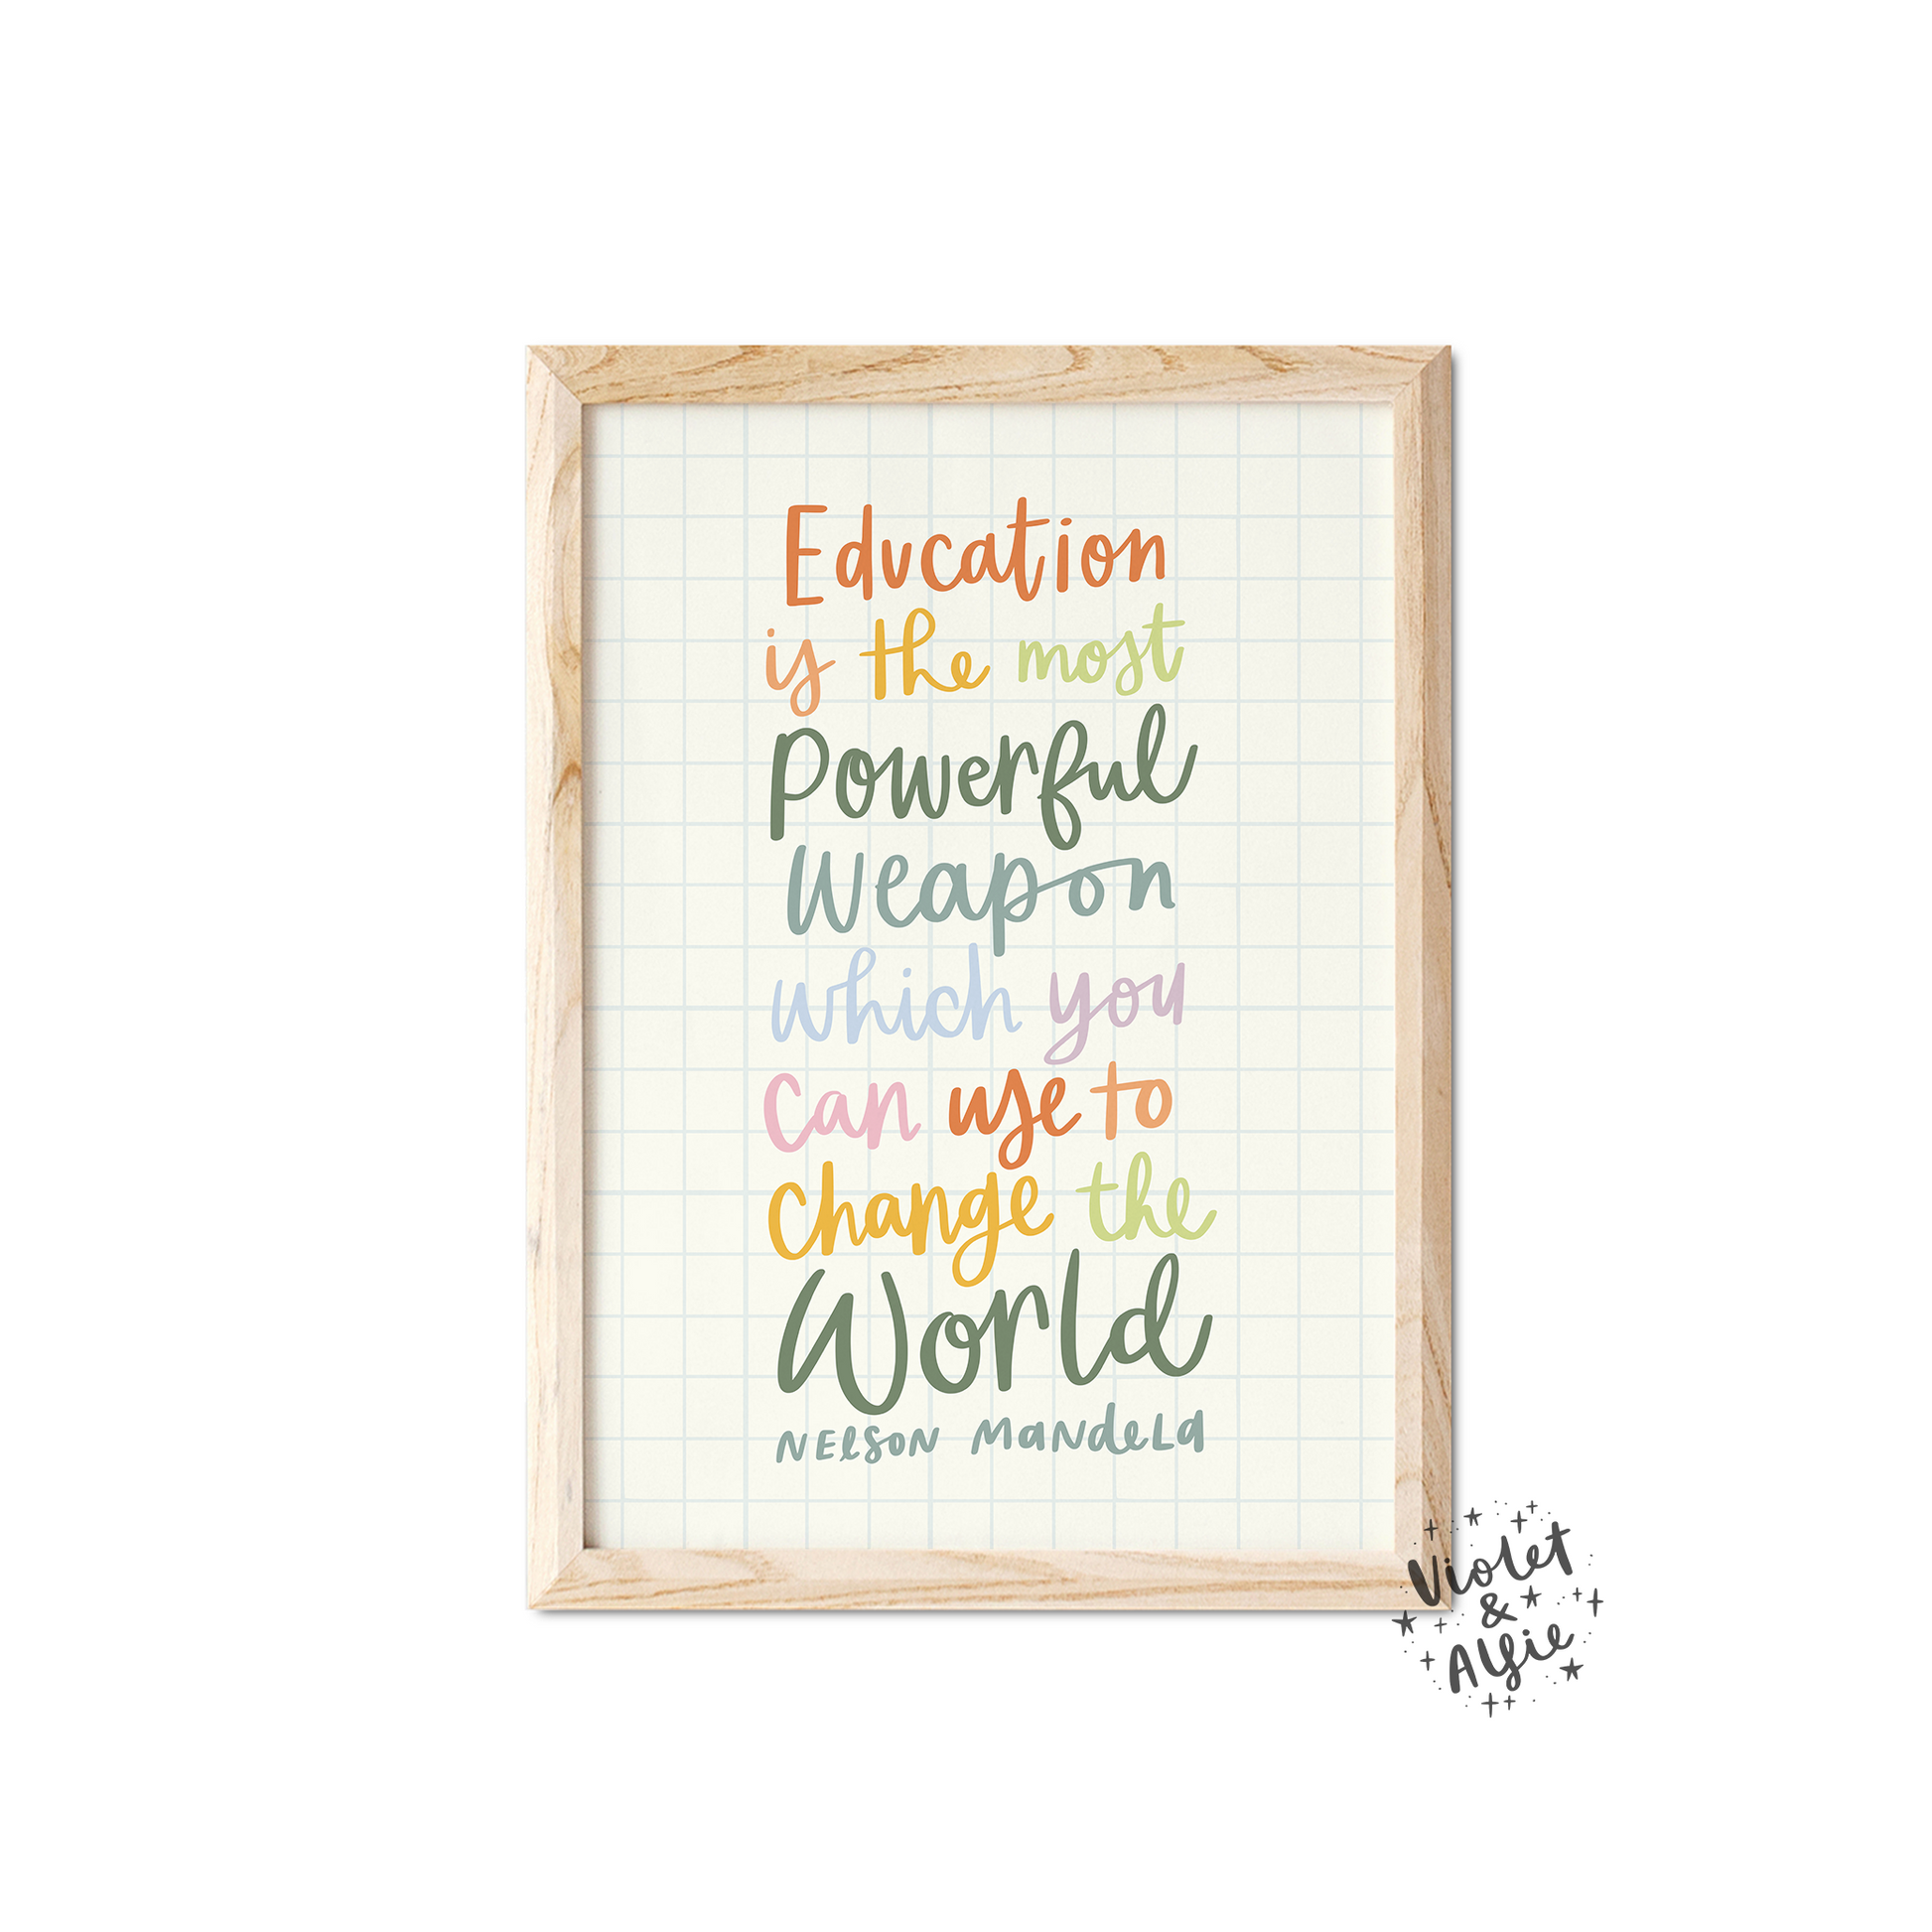 Education
is the most
Powerful
Weapon
which you
can use to
change the
World
NELSON MANDELA
Violet
&
Alfie